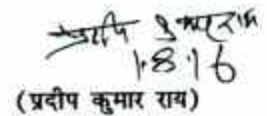 प्रदीप कुमार राय
1.8.16
(प्रदीप कुमार राय)